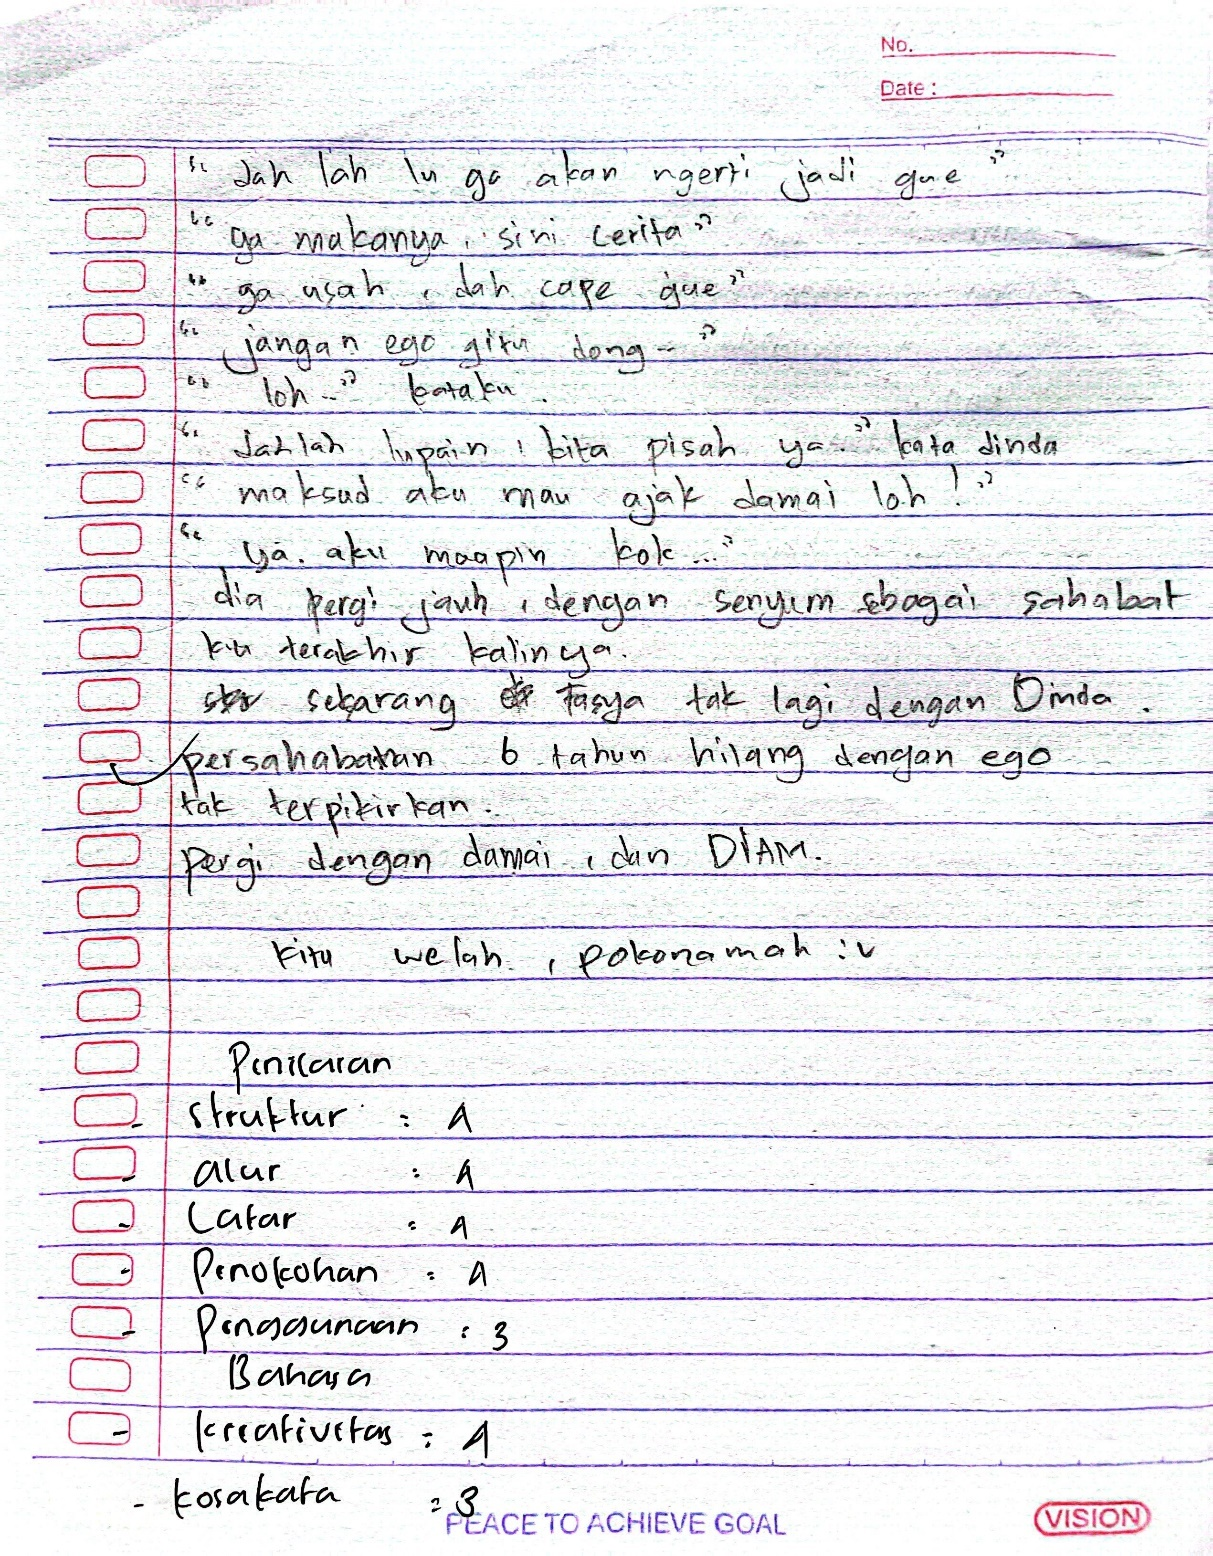 No.
Date :
"dah lah lu ga akan ngerti jadi gue"
"ga makanya, sini cerita"
"ga usah, dah cape gue"
"jangan ego gitu dong.."
"loh.." kataku.
"dahlah lupain, kita pisah ya." kata dinda
"maksud aku mau ajak damai loh!"
"ya. aku maapin kok..."
dia pergi jauh, dengan senyum sbagai sahabat
ku terakhir kalinya.
sekarang Tasya tak lagi dengan Dinda.
persahabatan 6 tahun hilang dengan ego
tak terpikirkan.
pergi dengan damai, dan DIAM.
kitu welah, pokonamah :v
Penilaian
- Struktur : A
- alur : A
- Latar : A
- Penokohan : A
- Penggunaan : 3
Bahasa
- kreativitas : A
- kosakata : 3
PEACE TO ACHIEVE GOAL
VISION